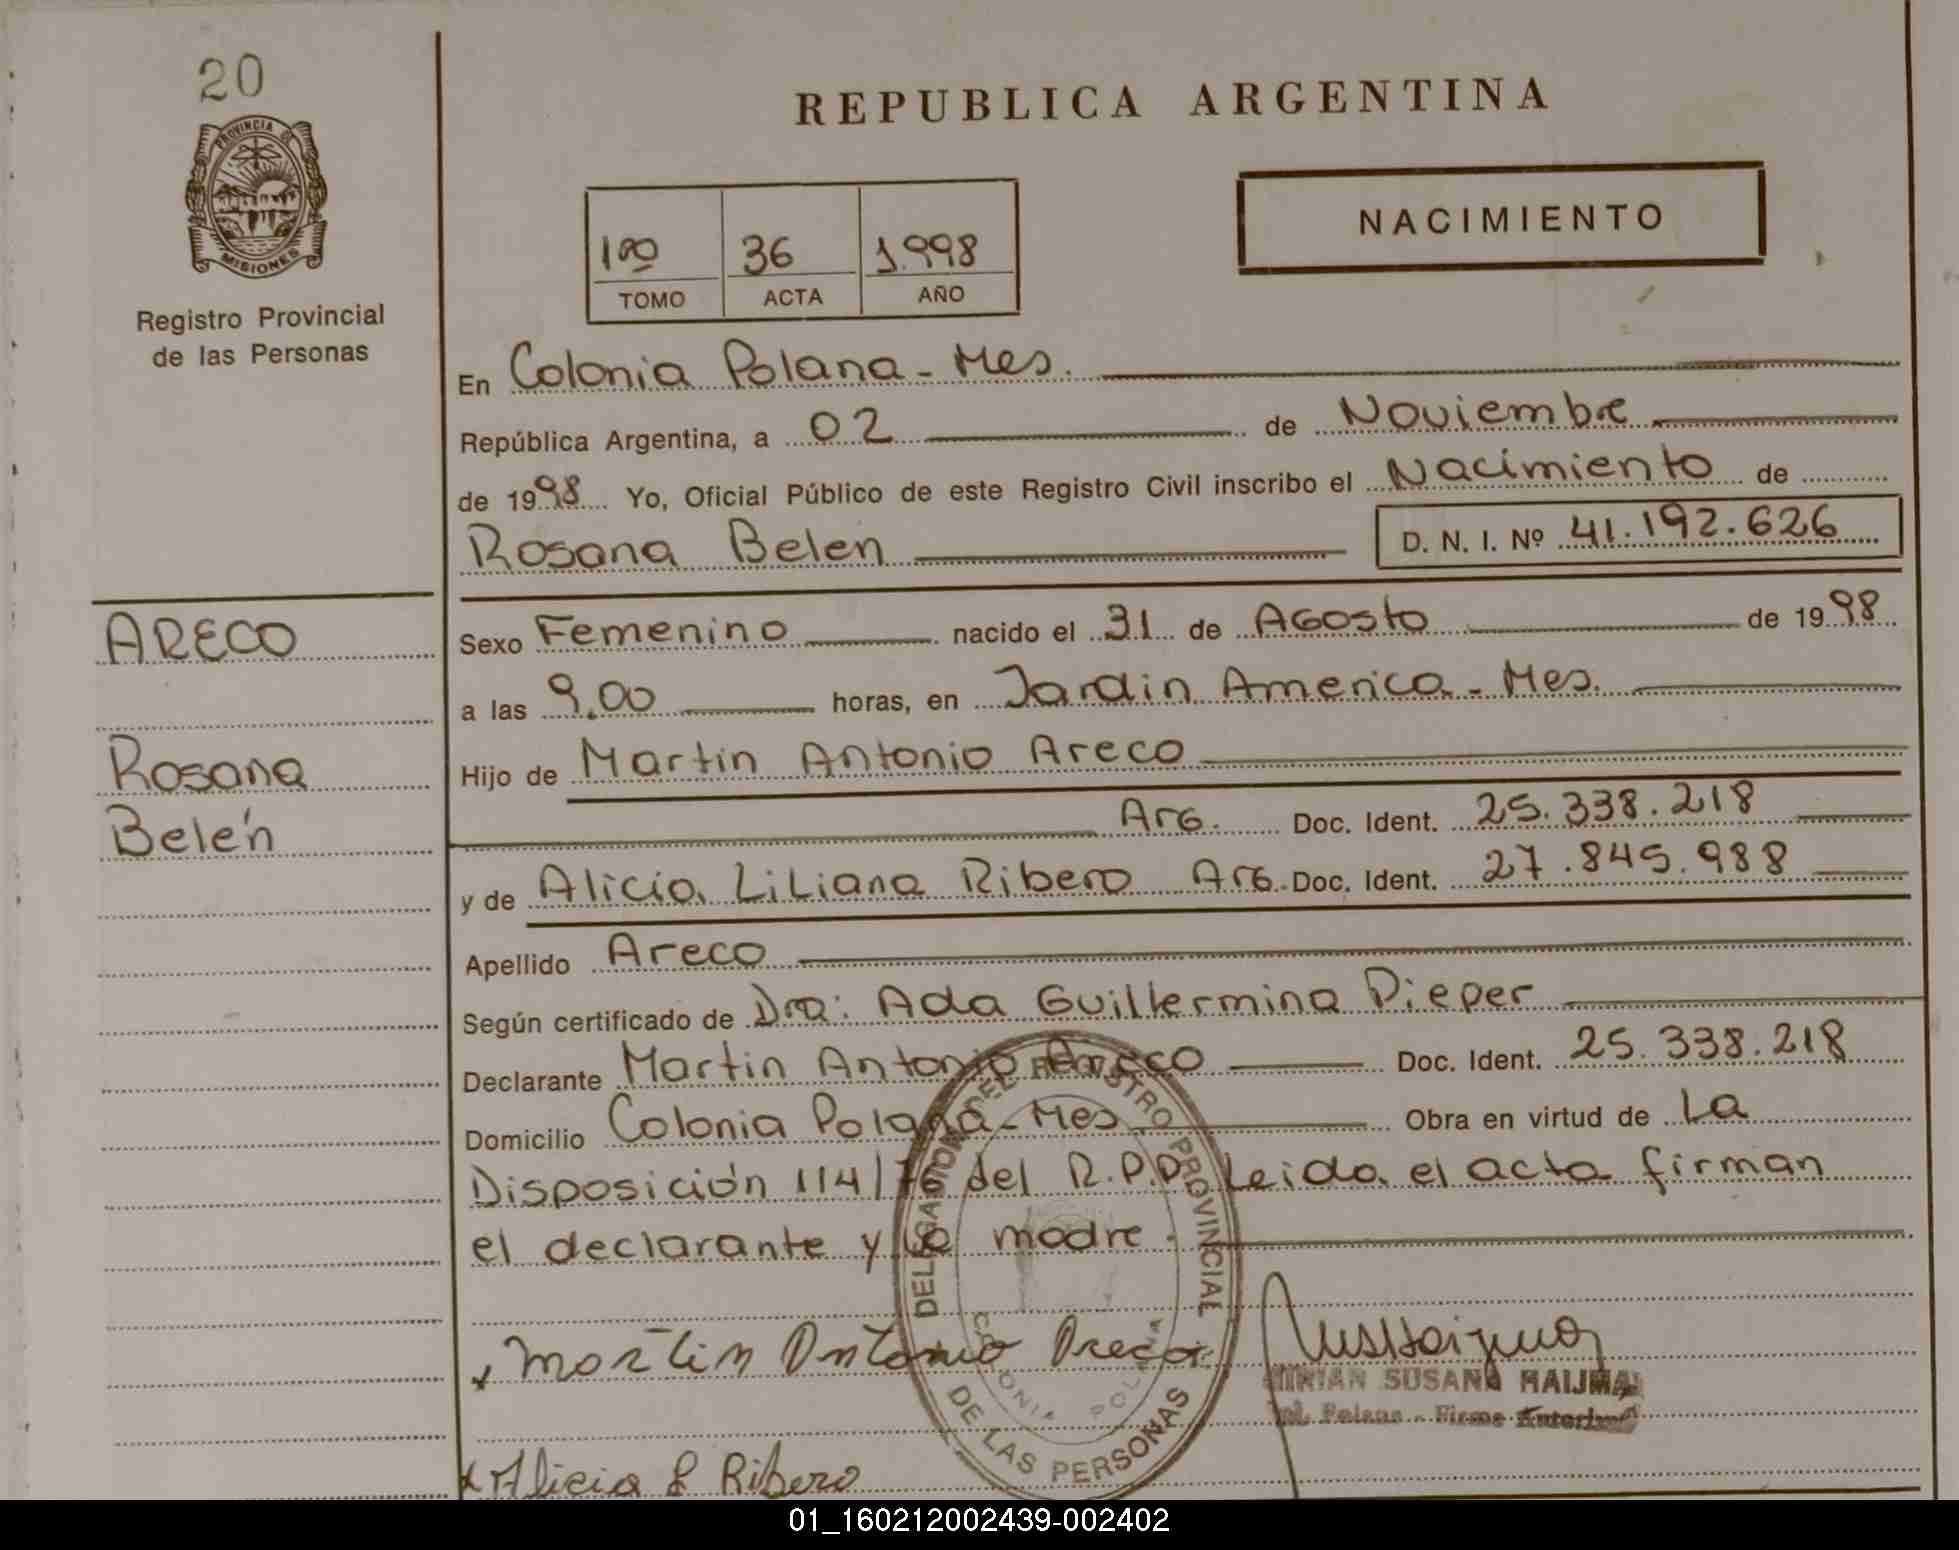 20
PROVINCIA DE
MISIONES
Registro Provincial
de las Personas
REPUBLICA ARGENTINA
NACIMIENTO
1ro 36 1.998
TOMO ACTA AÑO
En Colonia Polana - Mes.
República Argentina, a 02 de Noviembre
de 1998 Yo, Oficial Público de este Registro Civil inscribo el Nacimiento de
Rosana Belen D. N. I. Nº 41.192.626
ARECO
Rosana
Belén
Sexo Femenino nacido el 31 de Agosto de 1998
a las 9.00 horas, en Jardin America - Mes.
Hijo de Martin Antonio Areco
Arg. Doc. Ident. 25.338.218
y de Alicia Liliana Ribero Arg. Doc. Ident. 27.845.988
Apellido Areco
Según certificado de Dra: Ada Guillermina Dieper
Declarante Martin Antonio Areco Doc. Ident. 25.338.218
Domicilio Colonia Polana - Mes Obra en virtud de La
Disposición 114/76 del R.P.P. Leida el acta firman
el declarante y la madre.
DELEGACION DEL REGISTRO PROVINCIAL
DE LAS PERSONAS
COLONIA POLANA
Martin Antonio Areco
MIRIAN SUSANA HAIJMA
Col. Polana - Firma Autorizada
Alicia L Ribero
01_160212002439-002402